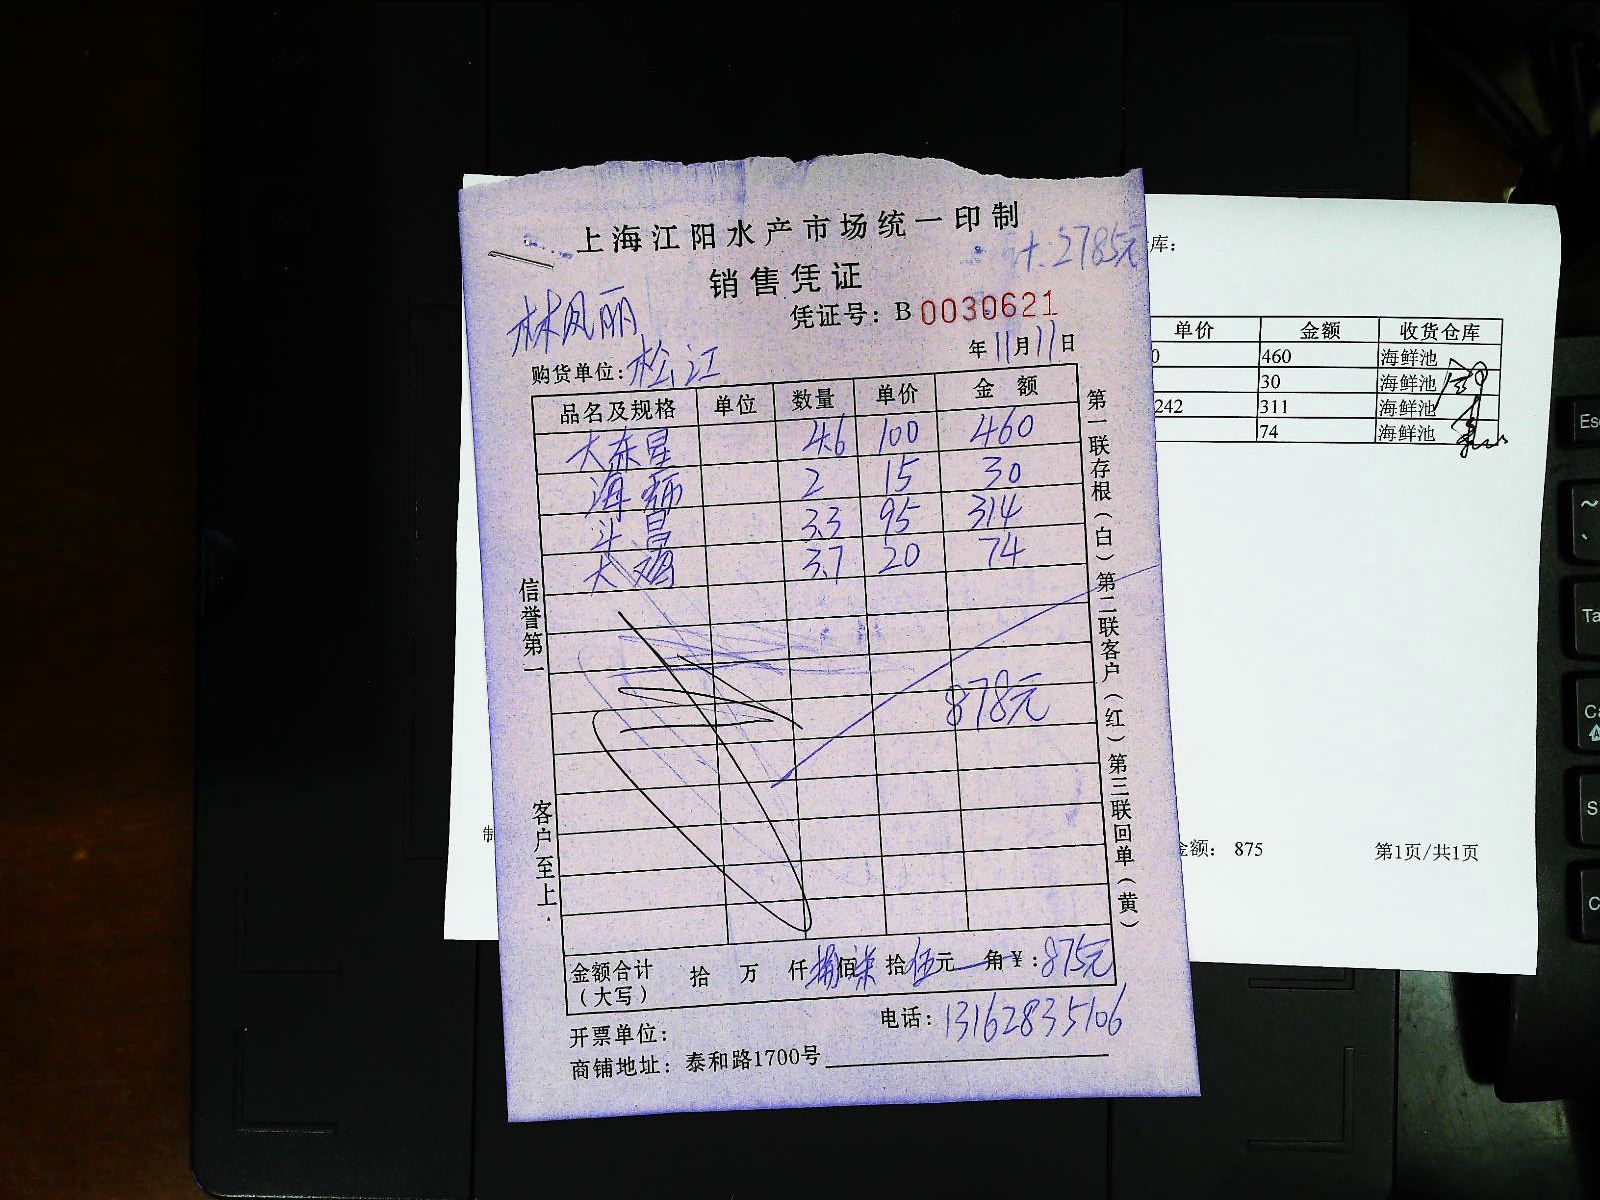 上海江阳水产市场统一印制
2785元
销售凭证
林凤丽
凭证号：B 0030621
年11月11日
购货单位：松江
品名及规格 单位 数量 单价 金额
大东星 4.6 100 460
海 2 15 30
3.3 95 314
大 3.7 20 74
878元
金额合计（大写） 拾 万 仟 捌佰柒拾伍元 角￥：875元
开票单位：
电话：13162835106
商铺地址：泰和路1700号
信誉第一
客户至上
第一联存根（白）第二联客户（红）第三联回单（黄）
库：
单价 金额 收货仓库
0 460 海鲜池
30 海鲜池
242 311 海鲜池
74 海鲜池
制
金额： 875
第1页/共1页
Esc
~
Ta
Ca
S
C